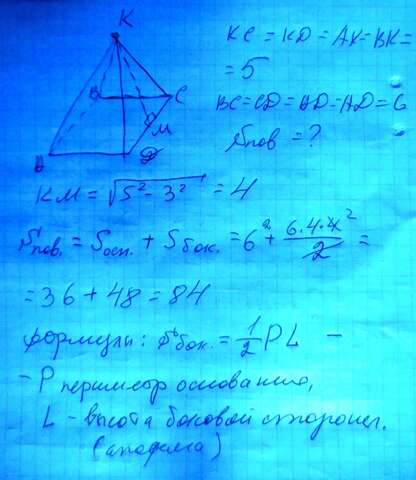 K
KC = KD = AK = BK =
= 5
B
C
BC = CD = AD = AD = 6
M
Sпов = ?
D
KM = √5² - 3² = 4
Sпов. = Sосн. + Sбок. = 6² + 6·4·4² / 2 =
= 36 + 48 = 84
формулы: Sбок. = 1/2 PL -
- P периметр основания,
L - высота боковой стороны.
(апофема)